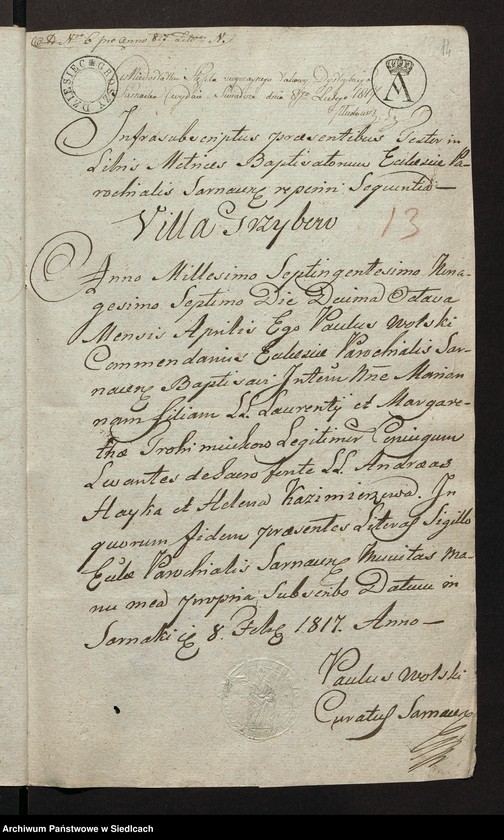 ad Nrm 6 pro Anno 817 Actow N. 1
14
DZIESIEC GROSZY
A
wydał Sarnaki dnia 8go Lutego 1817
Infrascriptus præsentibus Testor in
Libris Metrices Baptisatorum Ecclesiæ Pa-
rochialis Sarnacen reperiri Sequentia
Villa Grzybow
13
Anno Millesimo Septingentesimo Nona-
gesimo Septimo Die Decima Octava
Mensis Aprilis Ego Paulus Wolski
Commendarius Ecclesiæ Parochialis Sar-
nacen Baptisavi Infantem Nne Marian-
nam filiam LL. Laurentij et Margare-
thæ Trohimiukow Legitimor Coniugum
Levantes de Sacro fonte LL Andreas
Hayka et Helena Kazimierzowa. In
quorum fidem præsentes Literas Sigillo
Eccłæ Parochialis Sarnacen Munitas ma-
nu mea propria Subscribo Datum in
Sarnaki 8. Febr 1817. Anno
Paulus Wolski
Curatus Sarnacen
Archiwum Państwowe w Siedlcach